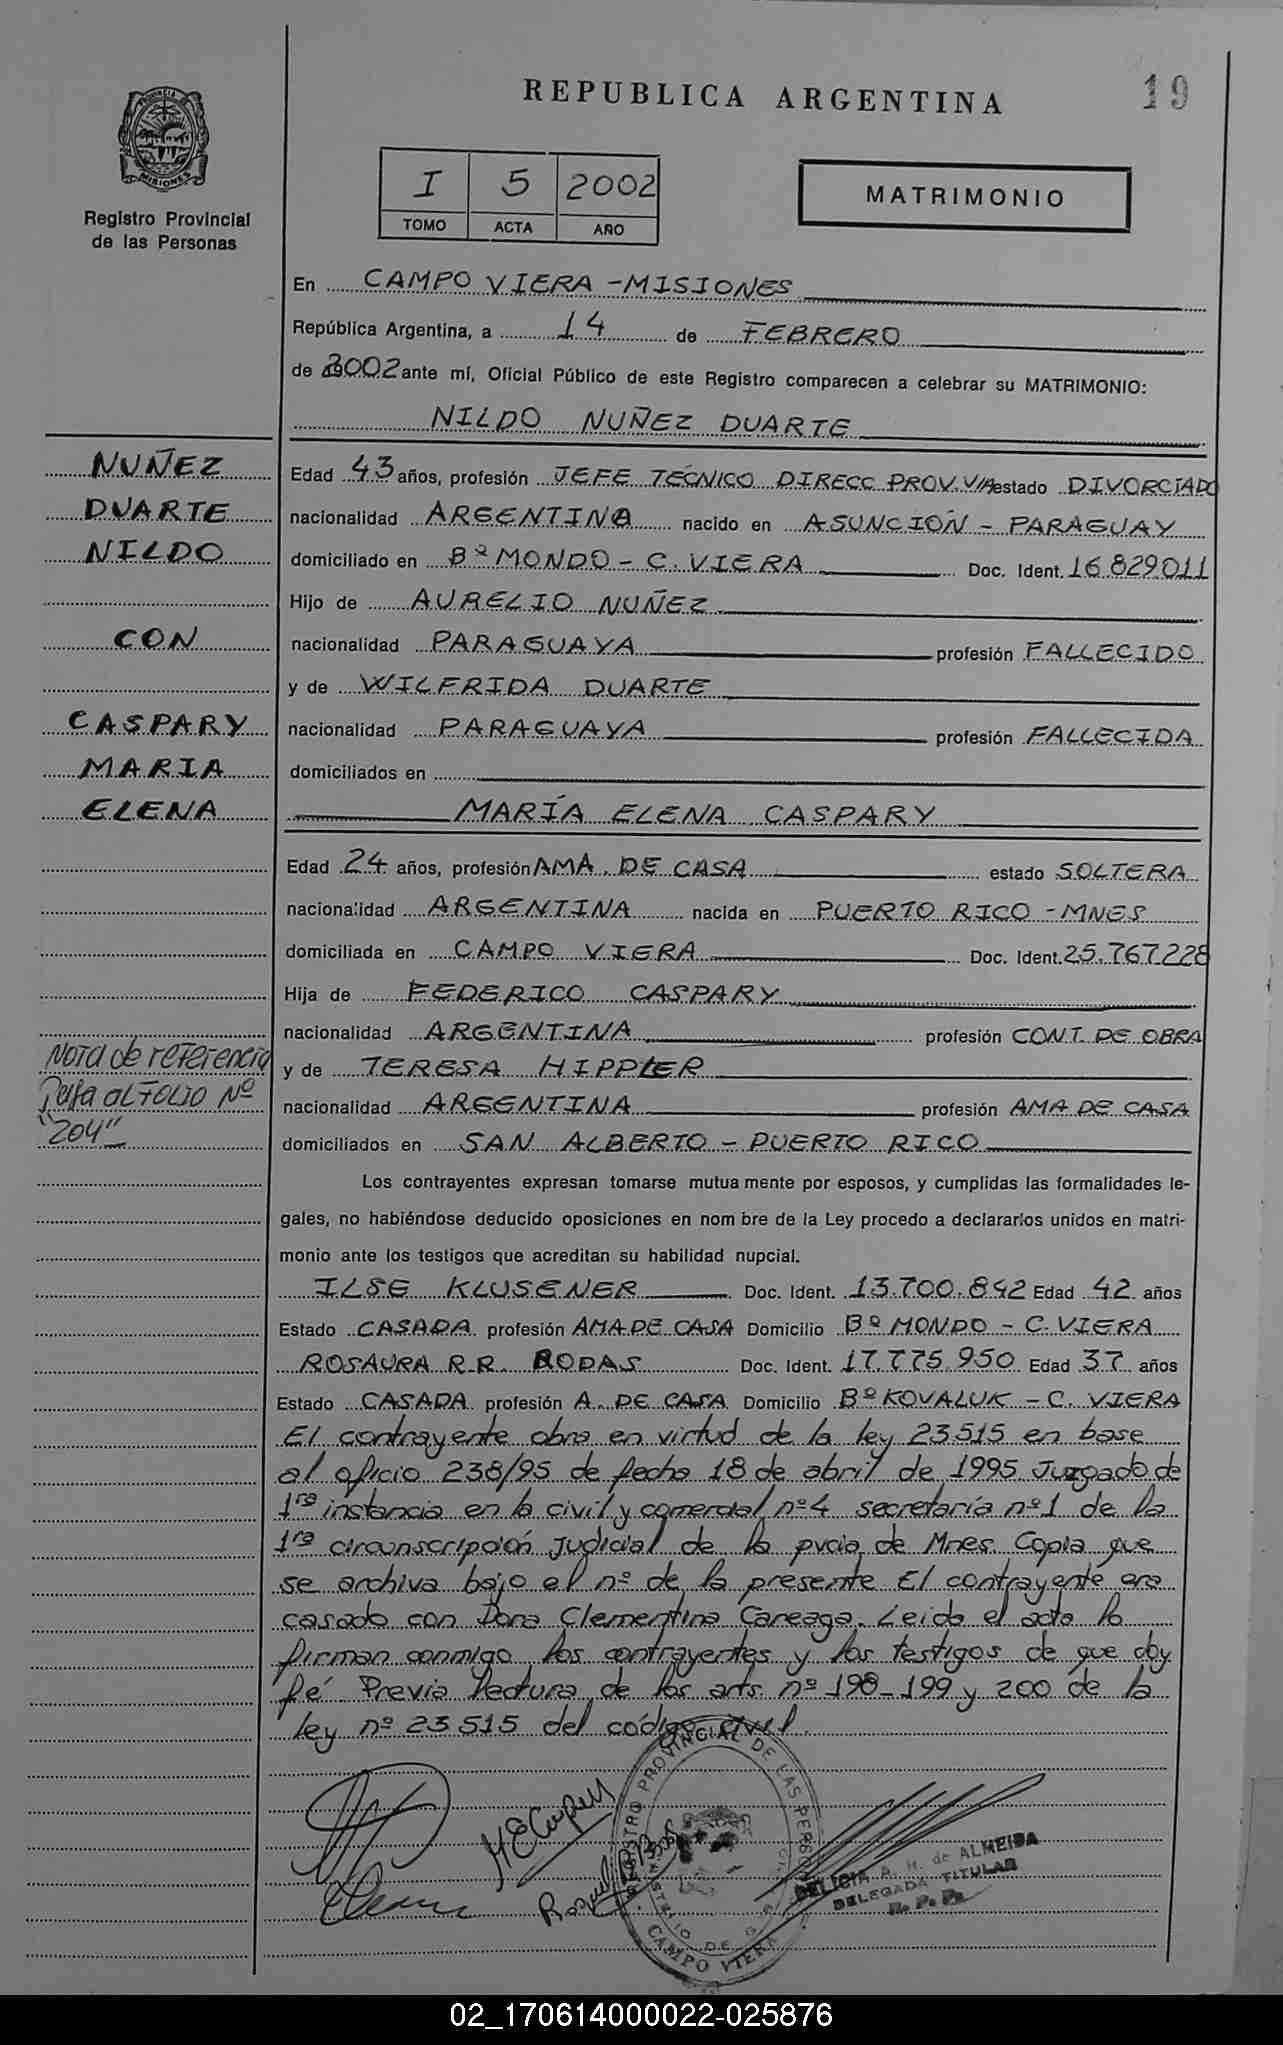 REPUBLICA ARGENTINA
19
PROVINCIA
MISIONES
Registro Provincial
de las Personas
I 5 2002
TOMO ACTA AÑO
MATRIMONIO
En CAMPO VIERA - MISIONES
República Argentina, a 14 de FEBRERO
de 2002 ante mí, Oficial Público de este Registro comparecen a celebrar su MATRIMONIO:
NILDO NUÑEZ DUARTE
NUÑEZ
DUARTE
NILDO
CON
CASPARY
MARIA
ELENA
Edad 43 años, profesión JEFE TÉCNICO DIRECC PROV. VIA estado DIVORCIADO
nacionalidad ARGENTINA nacido en ASUNCIÓN - PARAGUAY
domiciliado en Bº MONDO - C. VIERA Doc. Ident. 16.829.011
Hijo de AURELIO NUÑEZ
nacionalidad PARAGUAYA profesión FALLECIDO
y de WILFRIDA DUARTE
nacionalidad PARAGUAYA profesión FALLECIDA
domiciliados en
MARÍA ELENA CASPARY
Edad 24 años, profesión AMA DE CASA estado SOLTERA
nacionalidad ARGENTINA nacida en PUERTO RICO - MNES
domiciliada en CAMPO VIERA Doc. Ident. 25.767.228
Hija de FEDERICO CASPARY
nacionalidad ARGENTINA profesión CONT. DE OBRA
y de TERESA HIPPLER
nacionalidad ARGENTINA profesión AMA DE CASA
domiciliados en SAN ALBERTO - PUERTO RICO
Nota de referencia
Pasa al FOLIO Nº
"204"
Los contrayentes expresan tomarse mutua mente por esposos, y cumplidas las formalidades le-
gales, no habiéndose deducido oposiciones en nom bre de la Ley procedo a declararlos unidos en matri-
monio ante los testigos que acreditan su habilidad nupcial.
ILSE KLUSENER Doc. Ident. 13.700.842 Edad 42 años
Estado CASADA profesión AMA DE CASA Domicilio Bº MONDO - C. VIERA
ROSAURA R.R. RODAS Doc. Ident. 17.775.950 Edad 37 años
Estado CASADA profesión A. DE CASA Domicilio Bº KOVALUK - C. VIERA
El contrayente obra en virtud de la ley 23515 en base
al oficio 238/95 de fecha 18 de abril de 1995 Juzgado de
1ra instancia en lo civil y comercial nº 4 secretaría nº 1 de la
1ra circunscripción judicial de la pvcia de Mnes. Copia que
se archiva bajo el nº de la presente El contrayente era
casado con Dona Clementina Careaga. Leida el acta la
firman conmigo los contrayentes y los testigos de que doy
fé. Previa lectura de los arts. nº 198-199 y 200 de la
ley nº 23515 del código civil.
REGISTRO PROVINCIAL DE LAS PERSONAS
MINISTERIO DE G.
CAMPO VIERA
DELICIA A. H. de ALMEIDA
DELEGADA TITULAR
R. P. P.
02_170614000022-025876